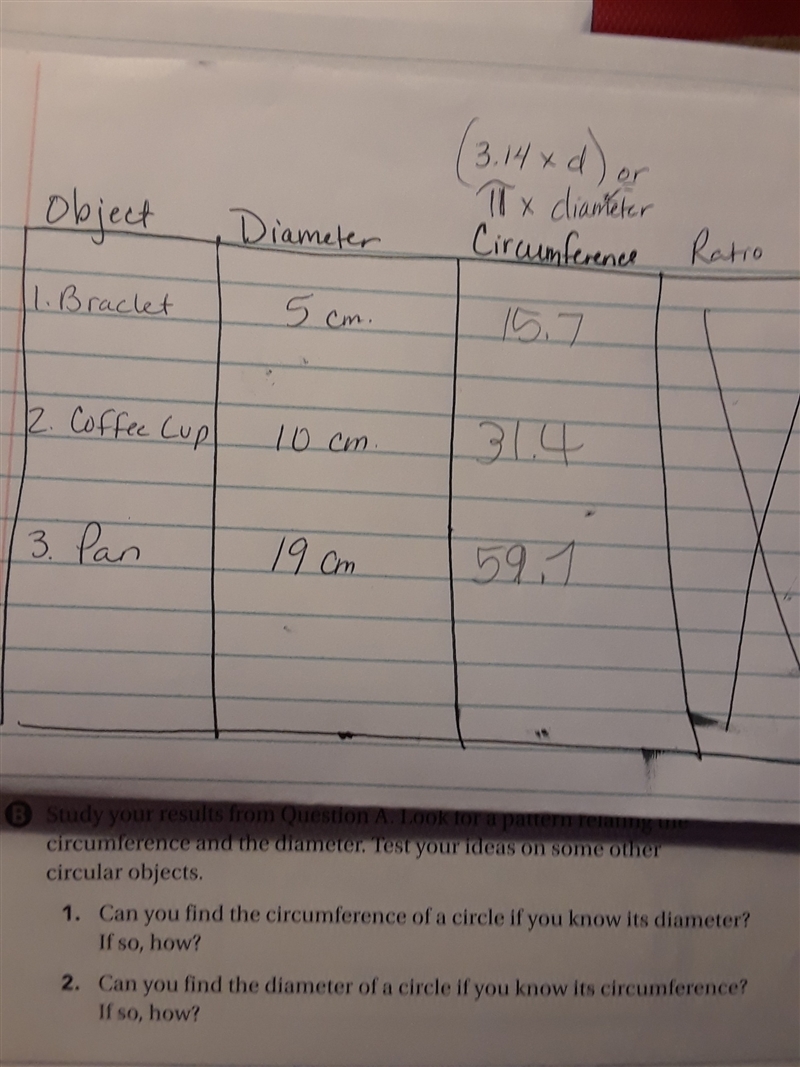 (3.14 x d) or
π x diameter
Object Diameter Circumference Ratio
1. Braclet 5 cm. 15.7
2. Coffee Cup 10 cm. 31.4
3. Pan 19 cm 59.7
B Study your results from Question A. Look for a pattern relating the
circumference and the diameter. Test your ideas on some other
circular objects.
1. Can you find the circumference of a circle if you know its diameter?
If so, how?
2. Can you find the diameter of a circle if you know its circumference?
If so, how?